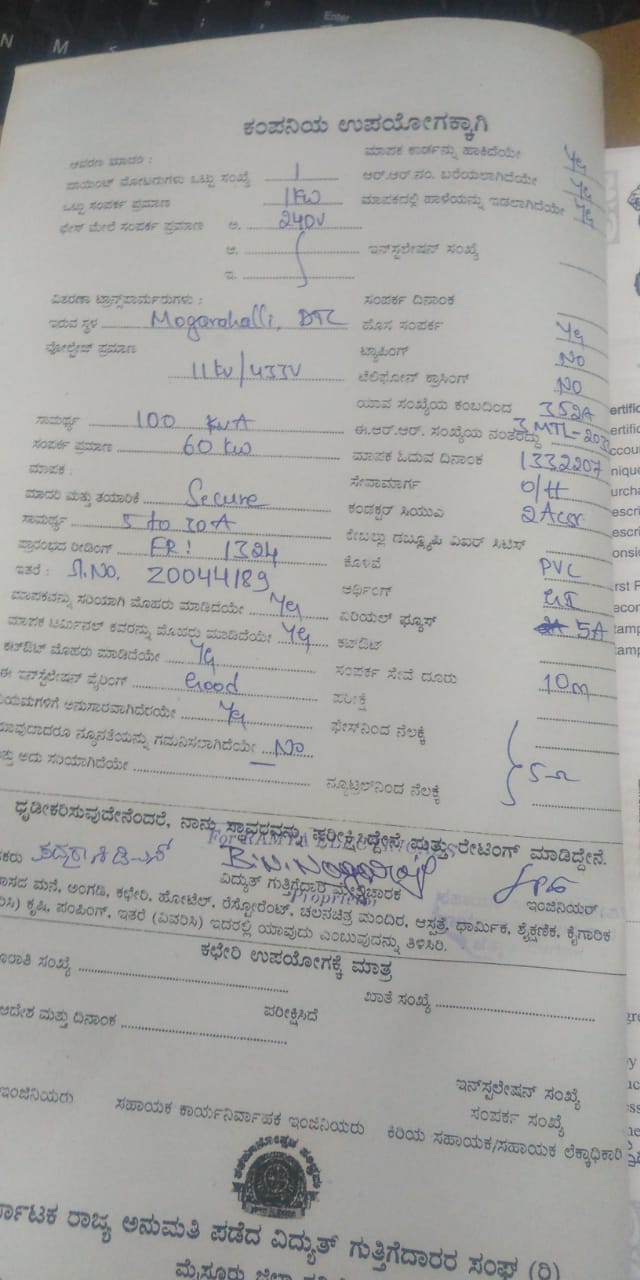 ಕಂಪನಿಯ ಉಪಯೋಗಕ್ಕಾಗಿ
ಆವರಣ ಮಾದರಿ : ಮಾಪಕ ಕಾರ್ಡನ್ನು ಹಾಕಿದೆಯೇ Yes
ಪಾಯಿಂಟ್ ಮೋಟರುಗಳು ಒಟ್ಟು ಸಂಖ್ಯೆ 1 ಆರ್.ಆರ್.ನಂ. ಬರೆಯಲಾಗಿದೆಯೇ Yes
ಒಟ್ಟು ಸಂಪರ್ಕ ಪ್ರಮಾಣ 1KW ಮಾಪಕದಲ್ಲಿ ಹಾಳೆಯನ್ನು ಇಡಲಾಗಿದೆಯೇ Yes
ಫೇಸ್ ಮೇಲೆ ಸಂಪರ್ಕ ಪ್ರಮಾಣ ಅ. 240V
ಆ. ಇನ್‌ಸ್ಟಲೇಷನ್ ಸಂಖ್ಯೆ
ಇ.
ವಿತರಣಾ ಟ್ರಾನ್ಸ್‌ಪಾರ್ಮರುಗಳು : ಸಂಪರ್ಕ ದಿನಾಂಕ
ಇರುವ ಸ್ಥಳ Mogarahalli, DTC ಹೊಸ ಸಂಪರ್ಕ Yes
ವೋಲ್ಟೇಜ್ ಪ್ರಮಾಣ ಟ್ಯಾಪಿಂಗ್ NO
11kv/433V ಟೆಲಿಫೋನ್ ಕ್ರಾಸಿಂಗ್ NO
ಯಾವ ಸಂಖ್ಯೆಯ ಕಂಬದಿಂದ 352A
ಸಾಮರ್ಥ್ಯ 100 KVA ಈ.ಆರ್.ಆರ್. ಸಂಖ್ಯೆಯ ನಂತರದ್ದು
ಸಂಪರ್ಕ ಪ್ರಮಾಣ 60 KW ಮಾಪಕ ಓದುವ ದಿನಾಂಕ 1332207
ಮಾಪಕ : ಸೇವಾಮಾರ್ಗ O/H
ಮಾದರಿ ಮತ್ತು ತಯಾರಿಕೆ Secure ಕಂಡಕ್ಟರ್ ಸಿಯುವಿ 2 Acsr
ಸಾಮರ್ಥ್ಯ 5 to 30A ಕೇಬಲ್ಲು ಡಬ್ಲ್ಯೂಪಿ ವಿಐರ್ ಸಿಟಿಸ್
ಪ್ರಾರಂಭದ ರೀಡಿಂಗ್ FR: 1324 ಕೊಳವೆ PVC
ಇತರೆ : Sl.NO. 20044189 ಅರ್ಥಿಂಗ್ GI
ಮಾಪಕವನ್ನು ಸರಿಯಾಗಿ ಮೊಹರು ಮಾಡಿದೆಯೇ Yes ಏರಿಯಲ್ ಫ್ಯೂಸ್ 5A
ಮಾಪಕ ಟರ್ಮಿನಲ್ ಕವರನ್ನು ಮೊಹರು ಮಾಡಿದೆಯೇ Yes ಕಟ್‌ಔಟ್
ಕಟ್‌ಔಟ್ ಮೊಹರು ಮಾಡಿದೆಯೇ Yes ಸಂಪರ್ಕ ಸೇವೆ ದೂರು 10m
ಈ ಇನ್‌ಸ್ಟಲೇಷನ್ ವೈರಿಂಗ್ Good ಪರೀಕ್ಷೆ
ಯಮಗಳಿಗೆ ಅನುಸಾರವಾಗಿದೆಯೇ Yes ಫೇಸ್‌ನಿಂದ ನೆಲಕ್ಕೆ
ಯಾವುದಾದರೂ ನ್ಯೂನತೆಯನ್ನು ಗಮನಿಸಲಾಗಿದೆಯೇ No 5Ω
ತ್ತು ಅದು ಸರಿಯಾಗಿದೆಯೇ ನ್ಯೂಟ್ರಲ್‌ನಿಂದ ನೆಲಕ್ಕೆ
ಧೃಡೀಕರಿಸುವುದೇನೆಂದರೆ, ನಾನು ಸ್ಥಾವರವನ್ನು ಪರೀಕ್ಷಿಸಿದ್ದೇನೆ ಮತ್ತು ರೇಟಿಂಗ್ ಮಾಡಿದ್ದೇನೆ.
For RAMYA
B.N. Nagaraj
ಕರು ವಿದ್ಯುತ್ ಗುತ್ತಿಗೆದಾರ ಮೇಲ್ವಿಚಾರಕ ಇಂಜಿನಿಯರ್
Proprietor
ಾಸದ ಮನೆ, ಅಂಗಡಿ, ಕಛೇರಿ, ಹೋಟೆಲ್, ರೆಸ್ಟೋರೆಂಟ್, ಚಲನಚಿತ್ರ ಮಂದಿರ, ಆಸ್ಪತ್ರೆ, ಧಾರ್ಮಿಕ, ಶೈಕ್ಷಣಿಕ, ಕೈಗಾರಿಕ
ರಿಸಿ) ಕೃಷಿ, ಪಂಪಿಂಗ್, ಇತರೆ (ವಿವರಿಸಿ) ಇದರಲ್ಲಿ ಯಾವುದು ಎಂಬುವುದನ್ನು ತಿಳಿಸಿರಿ.
ಕಛೇರಿ ಉಪಯೋಗಕ್ಕೆ ಮಾತ್ರ
ರಾತಿ ಸಂಖ್ಯೆ ಖಾತೆ ಸಂಖ್ಯೆ
ಆದೇಶ ಮತ್ತು ದಿನಾಂಕ ಪರೀಕ್ಷಿಸಿದೆ
ಇನ್‌ಸ್ಟಲೇಷನ್ ಸಂಖ್ಯೆ
ಸಂಪರ್ಕ ಸಂಖ್ಯೆ
ಇಂಜಿನಿಯರು ಸಹಾಯಕ ಕಾರ್ಯನಿರ್ವಾಹಕ ಇಂಜಿನಿಯರು ಕಿರಿಯ ಸಹಾಯಕ/ಸಹಾಯಕ ಲೆಕ್ಕಾಧಿಕಾರಿ
ರ್ನಾಟಕ ರಾಜ್ಯ ಅನುಮತಿ ಪಡೆದ ವಿದ್ಯುತ್ ಗುತ್ತಿಗೆದಾರರ ಸಂಘ (ರಿ)
ಮೈಸೂರು ಜಿಲ್ಲಾ